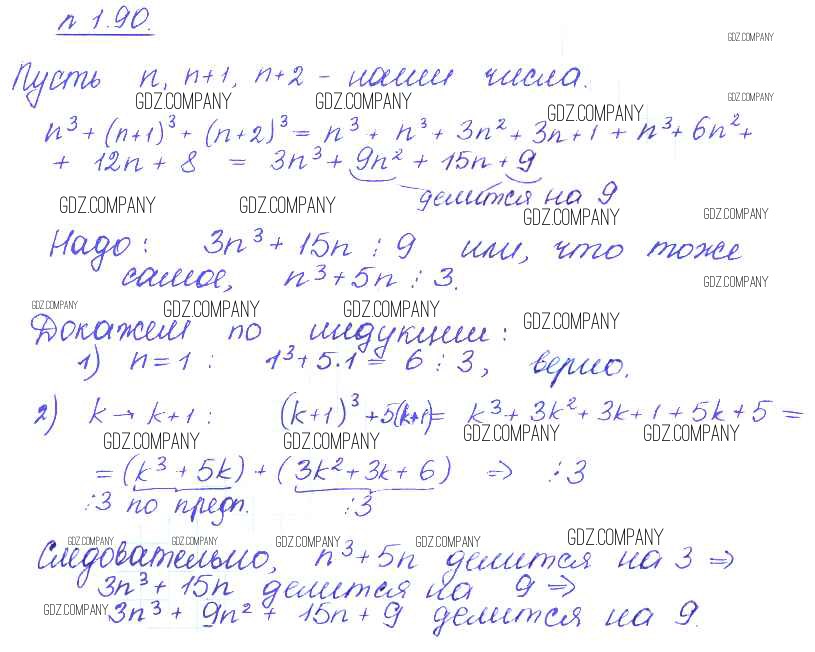 n 1.90.
GDZ.COMPANY
Пусть n, n+1, n+2 - наши числа.
GDZ.COMPANY GDZ.COMPANY GDZ.COMPANY GDZ.COMPANY
n³ + (n+1)³ + (n+2)³ = n³ + n³ + 3n² + 3n + 1 + n³ + 6n² +
+ 12n + 8 = 3n³ + 9n² + 15n + 9
делится на 9
GDZ.COMPANY GDZ.COMPANY GDZ.COMPANY GDZ.COMPANY
Надо: 3n³ + 15n ⋮ 9 или, что тоже
самое, n³ + 5n ⋮ 3.
GDZ.COMPANY
GDZ.COMPANY GDZ.COMPANY GDZ.COMPANY GDZ.COMPANY
Докажем по индукции:
1) n = 1 : 1³ + 5·1 = 6 ⋮ 3, верно.
2) k → k+1 : (k+1)³ + 5(k+1) = k³ + 3k² + 3k + 1 + 5k + 5 =
GDZ.COMPANY GDZ.COMPANY GDZ.COMPANY GDZ.COMPANY
= (k³ + 5k) + (3k² + 3k + 6) ⇒ ⋮ 3
⋮ 3 по предп. ⋮ 3
GDZ.COMPANY GDZ.COMPANY GDZ.COMPANY GDZ.COMPANY GDZ.COMPANY
Следовательно, n³ + 5n делится на 3 ⇒
3n³ + 15n делится на 9 ⇒
GDZ.COMPANY
3n³ + 9n² + 15n + 9 делится на 9.